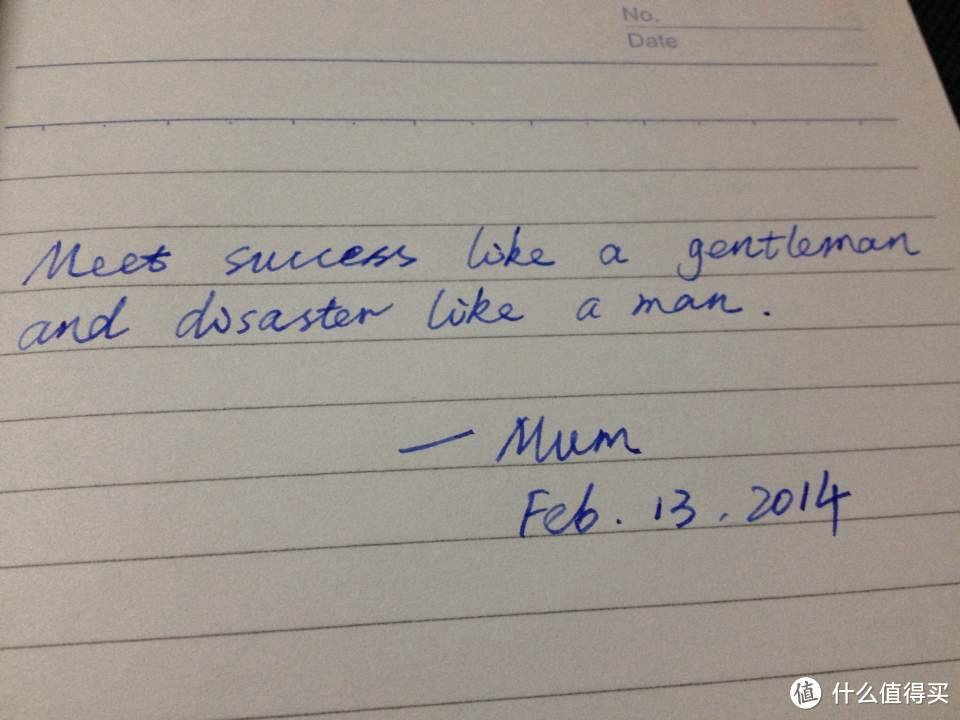 No.
Date
Meet success like a gentleman
and disaster like a man.
— Mum
Feb. 13. 2014
值 什么值得买